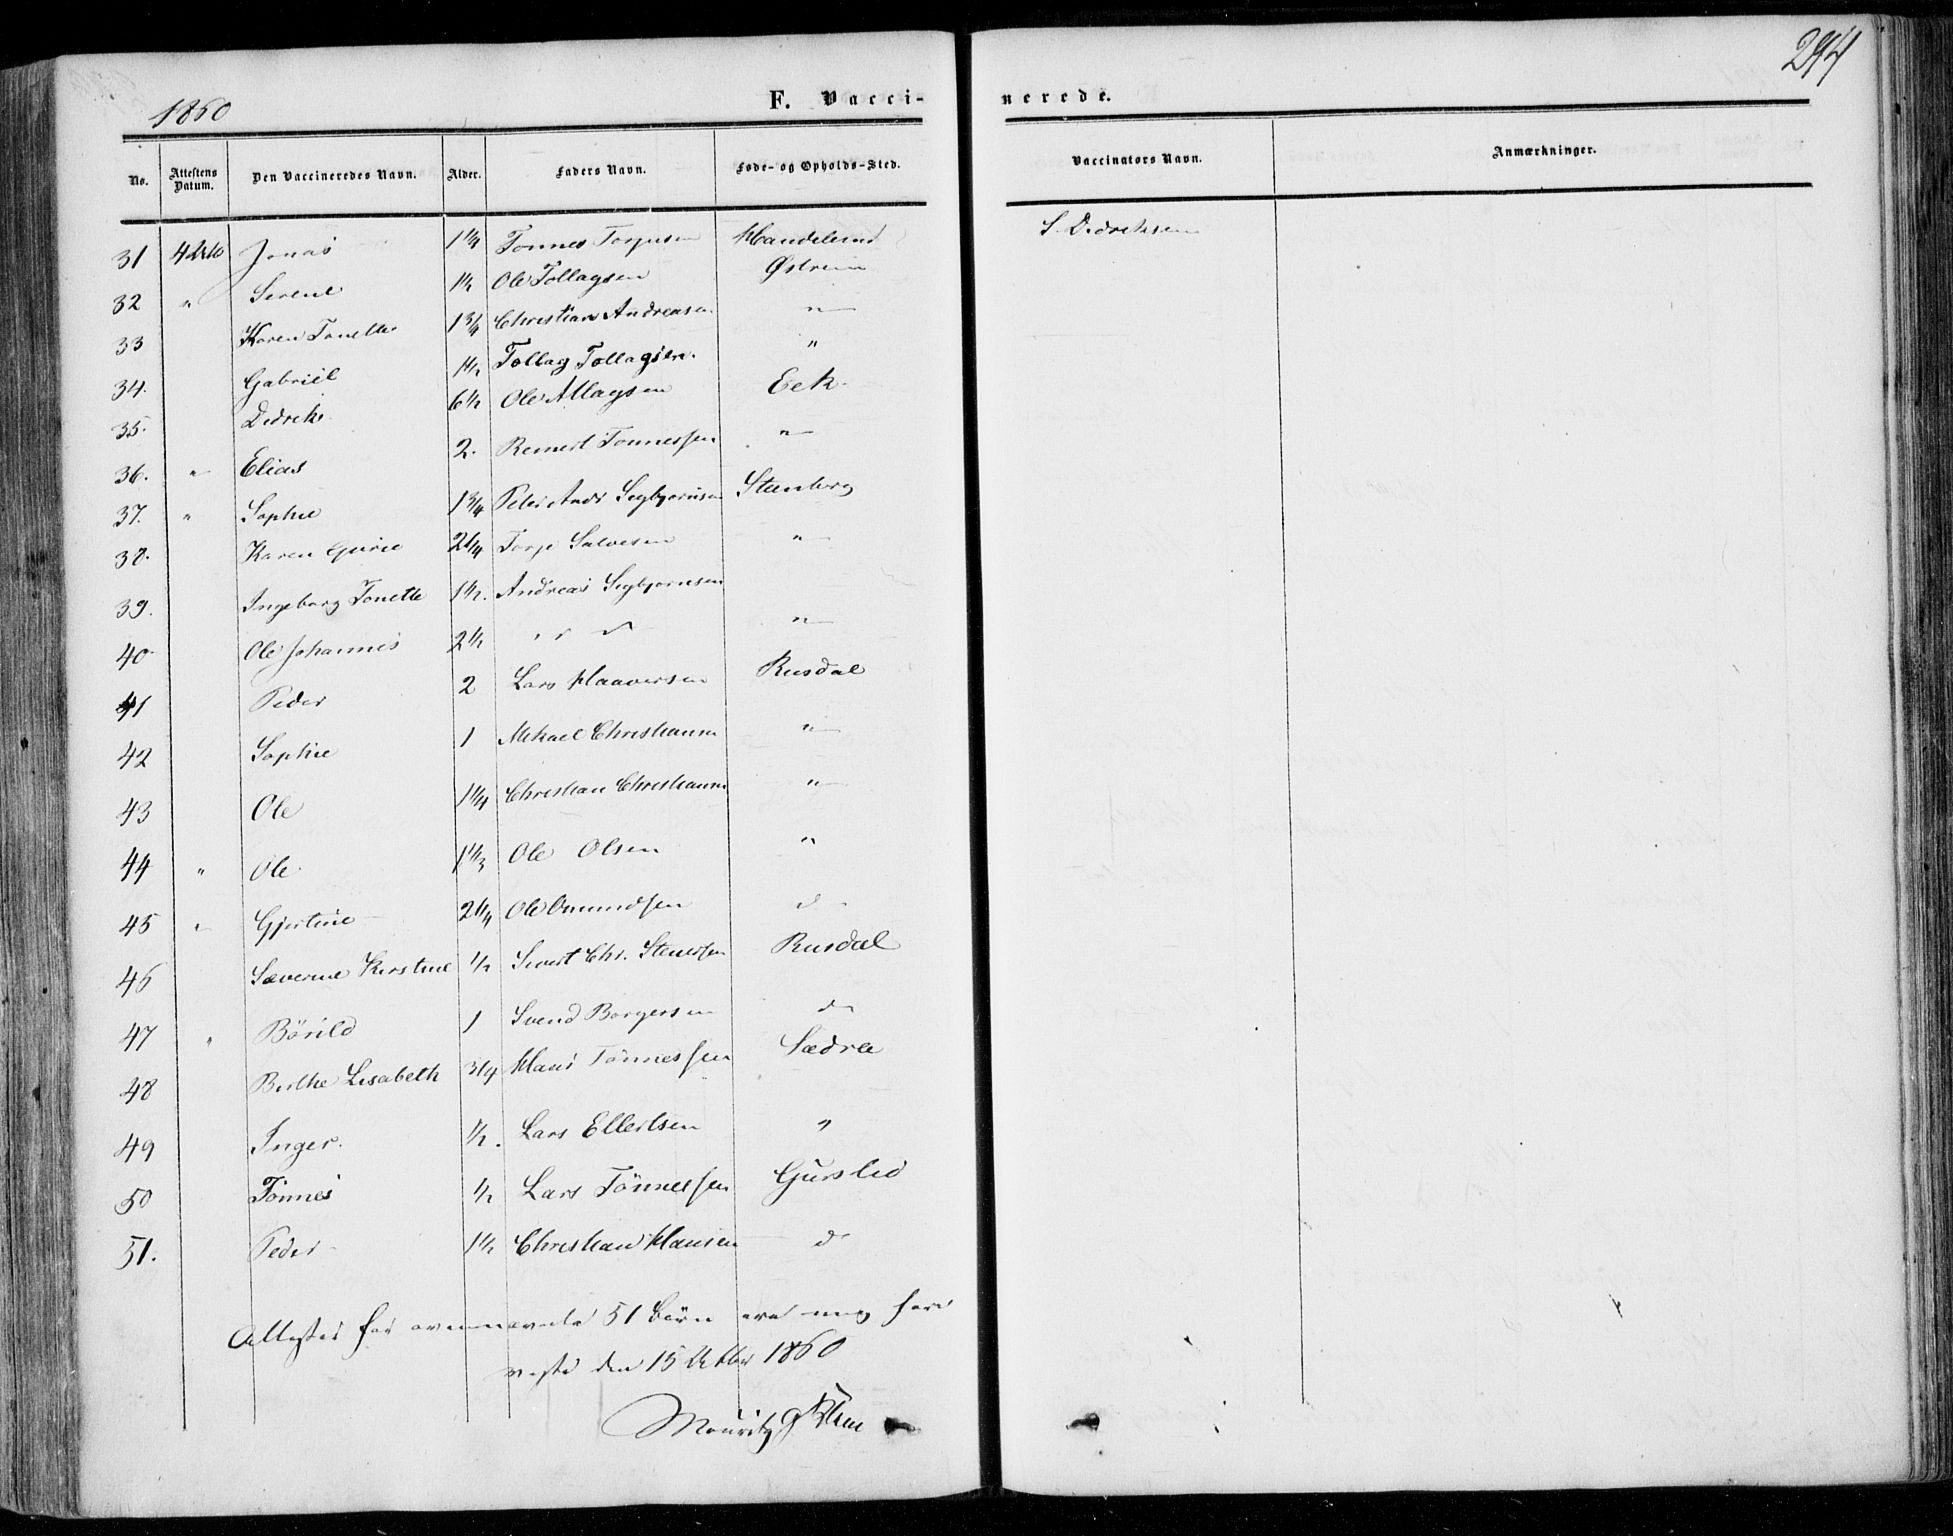 1860
F. Vacci-
nerede.
294
No.
Attestens Datum.
Den Vaccineredes Navn.
Alder.
Faders Navn.
Føde- og Opholds-Sted.
Vaccinators Navn.
Anmærkninger.
31 Jonas 1 1/4 Tønnes Torjusen
32 " Serene 1 1/2 Ole Tollagsen Østreim
33 Karen Tonette 1 3/4 Christian Andreasen "
34. Gabriel 1 1/2 Tollag Tollagsen "
35. Didrik 6 1/2 Ole Atlagsen Eek
36. " Elias 2. Reinert Tønnessen "
37. " Sophie 1 3/4 Peter Andr Segbjørnsen Steenberg
38. Karen Gurie 2 1/4 Torje Salvesen "
39. Ingeborg Tonette 1 1/2. Andreas Segbjørnsen
40 Ole Johannes 2 1/2 " " d "
41 Peder 2 Lars Haaversen Rusdal
42 Sophie 1 Mikael Christiansen "
43 Ole 1 1/4 Christian Christiansen "
44 " Ole 1 1/3 Ole Olsen "
45 " Gjertine 2 1/4 Ole Omundsen d
46 Severine Kirstine 1/2 Sivert Chr. Steensen Rusdal
47 " Børild 1 Svend Børgersen do
48 Birthe Lisabeth 3/4 Hans Tønnessen Sædre
49 Inger. 1/2. Lars Ellertsen "
50 Tønnes 1/2 Lars Tønnessen Gurslid
51. Peder 1 1/2 Christian Hansen do
Attester for ovennævnte 51 Børn ere mig fore
viste den 15 Octbr 1860
Mouritz